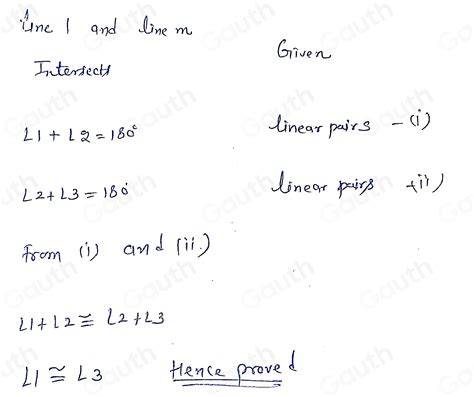 Line l and line m
Intersects
Given
∠1 + ∠2 = 180°
linear pairs - (i)
∠2 + ∠3 = 180°
linear pairs - (ii)
From (i) and (ii)
∠1 + ∠2 ≅ ∠2 + ∠3
∠1 ≅ ∠3
Hence proved
Gauth